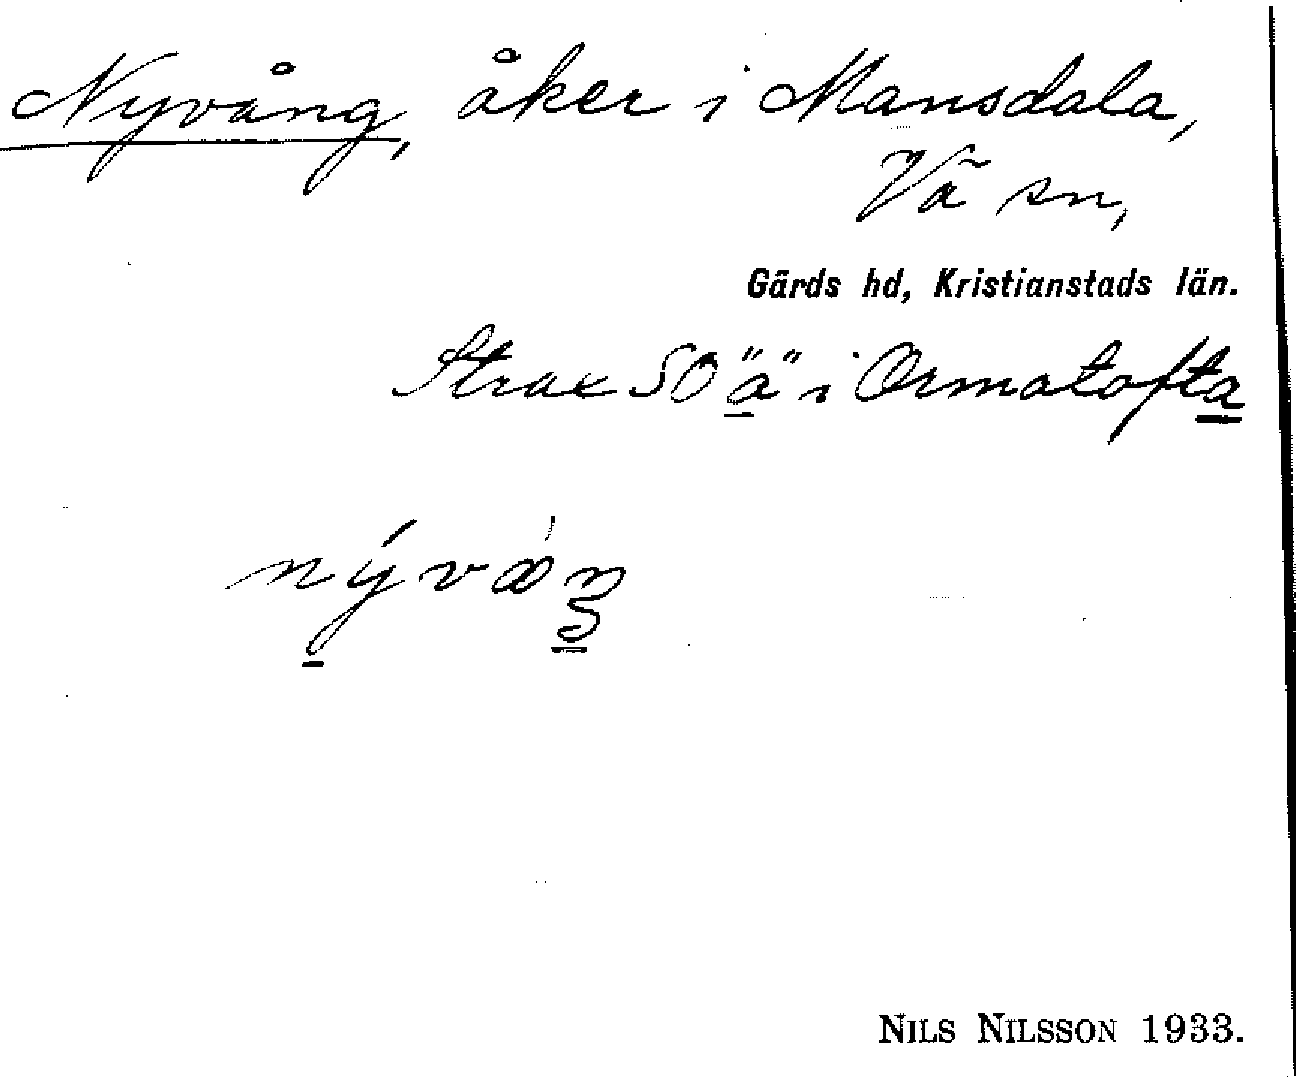 Nyvång, åker i Mansdala,
Vä sn,
Gärds hd, Kristianstads län.
Strax SO "a" i Ormatofta
Nils Nilsson 1933.